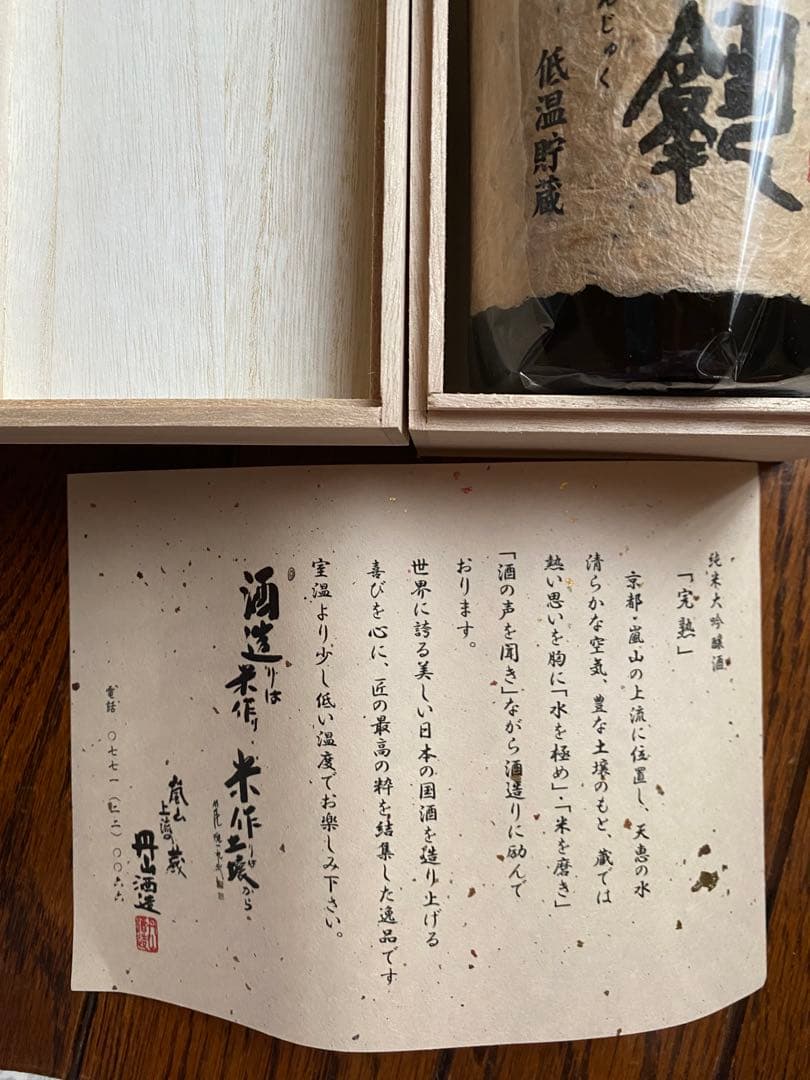 んじゅく
低温貯蔵
純米大吟醸酒
「完熟」
京都・嵐山の上流に位置し、天恵の水
清らかな空気、豊な土壌のもと、蔵では
熱い思いを胸に「水を極め」・「米を磨き」
「酒の声を聞き」ながら酒造りに励んで
おります。
世界に誇る美しい日本の国酒を造り上げる
喜びを心に、匠の最高の粋を結集した逸品です
室温より少し低い温度でお楽しみ下さい。
酒造りは
米作り・米作りは
土壌から
嵐山
上流の蔵
丹山酒造
電話 〇七七一(二二)〇〇六六